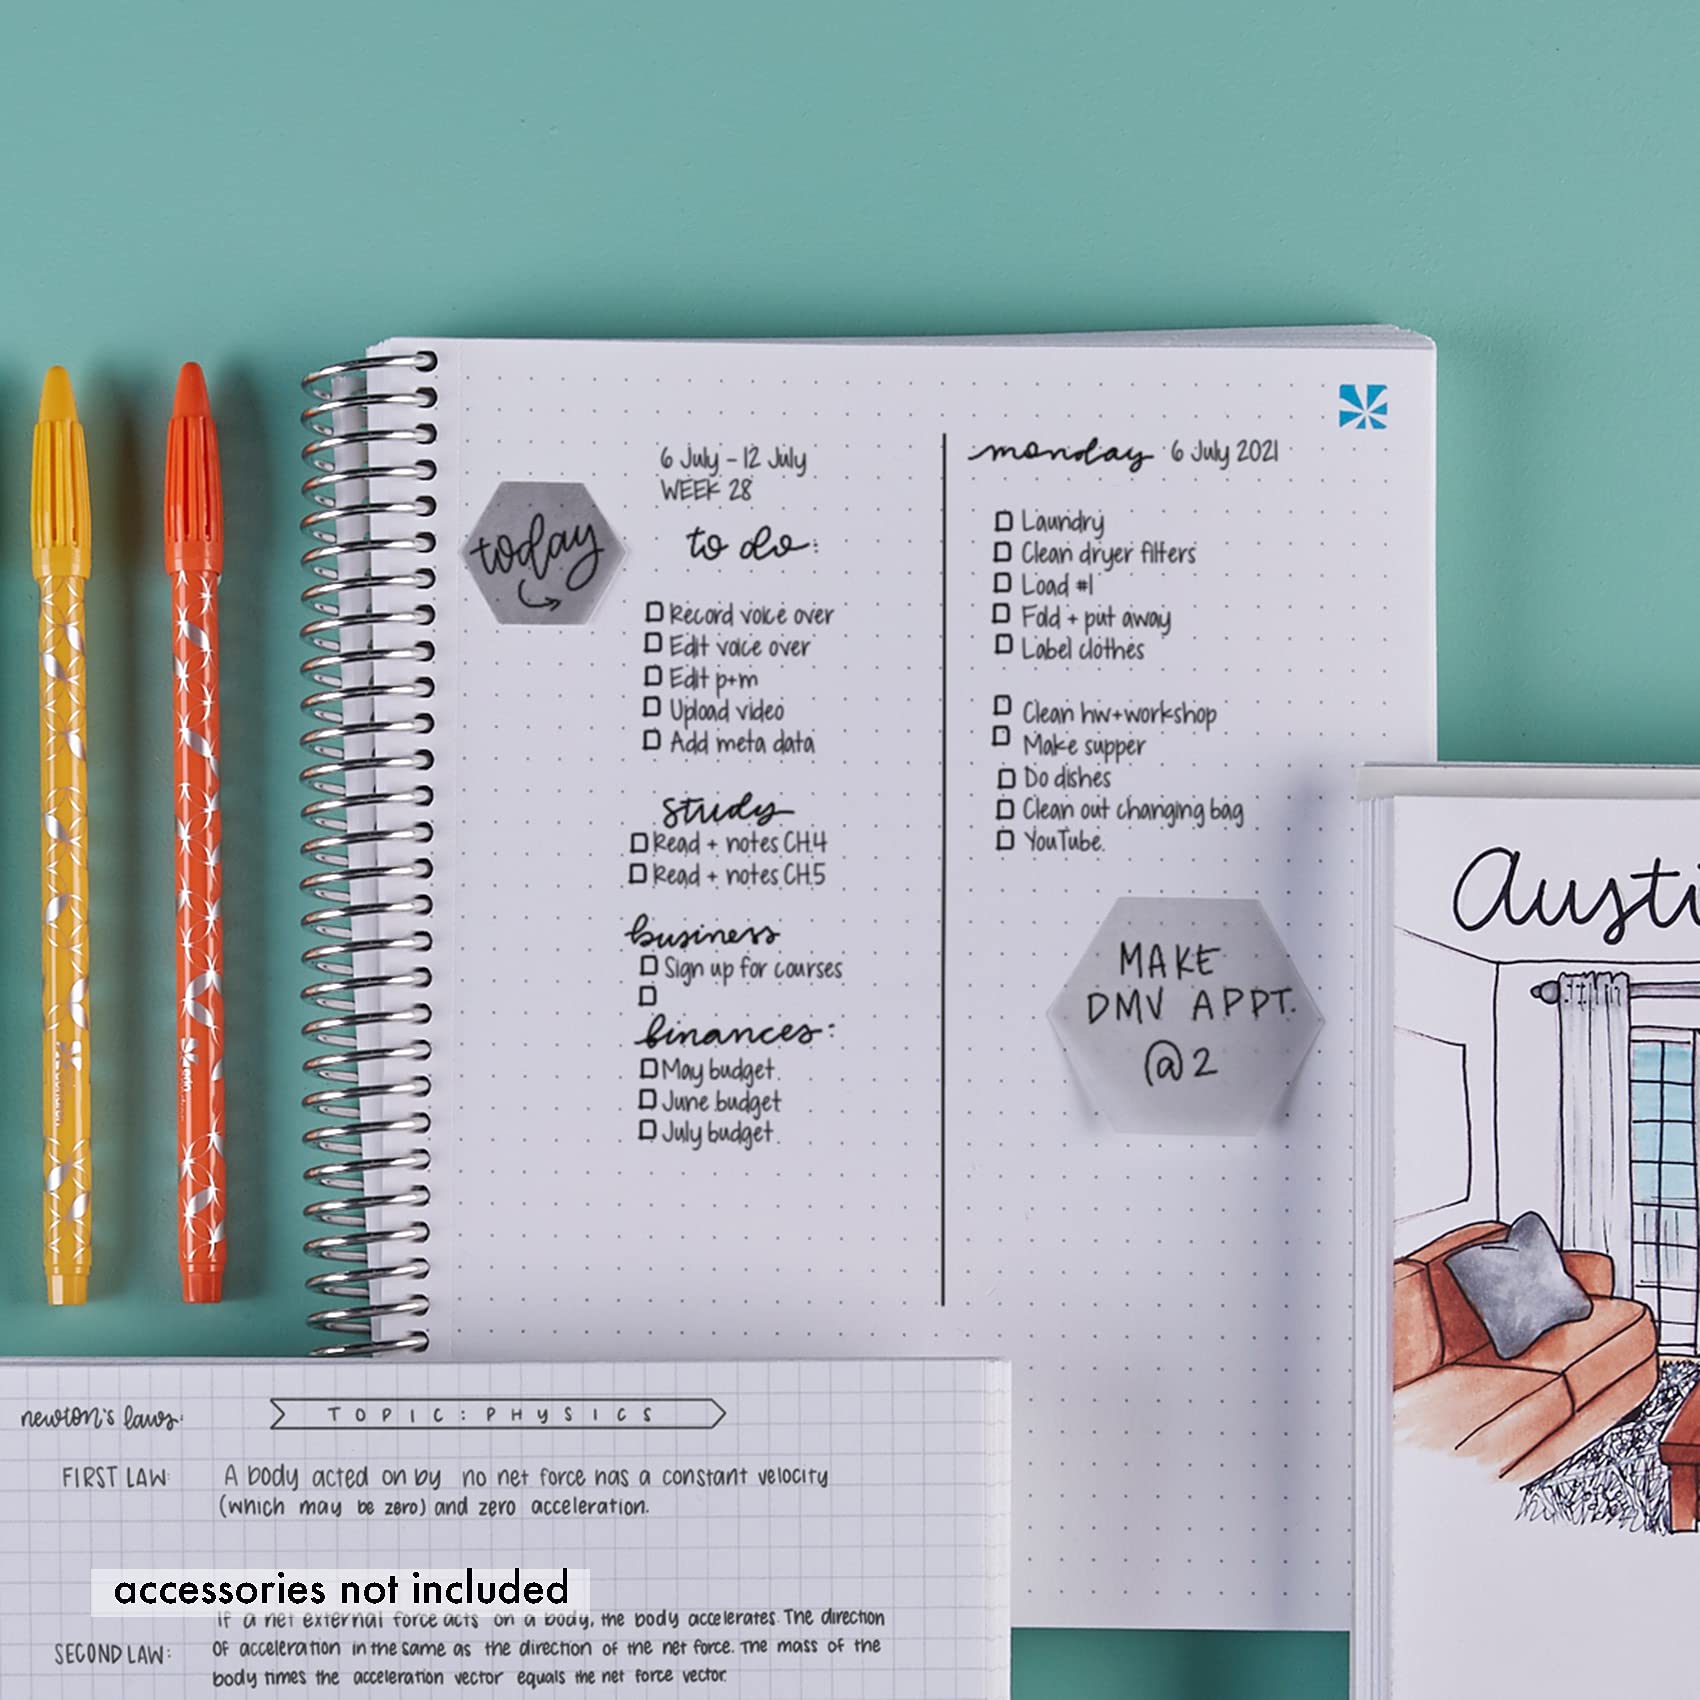 6 July - 12 July
WEEK 28
today
to do:
☐ Record voice over
☐ Edit voice over
☐ Edit p+m
☐ Upload video
☐ Add meta data
study
☐ Read + notes CH.4
☐ Read + notes CH.5
business
☐ Sign up for courses
☐
finances:
☐ May budget
☐ June budget
☐ July budget
monday 6 July 2021
☐ Laundry
☐ Clean dryer filters
☐ Load #1
☐ Fold + put away
☐ Label clothes
☐ Clean hw+workshop
☐ Make supper
☐ Do dishes
☐ Clean out changing bag
☐ YouTube
MAKE
DMV APPT.
@2
Austi
newton's laws:
TOPIC: PHYSICS
FIRST LAW: A body acted on by no net force has a constant velocity
(which may be zero) and zero acceleration.
accessories not included
If a net external force acts on a body, the body accelerates. The direction
SECOND LAW: of acceleration in the same as the direction of the net force. The mass of the
body times the acceleration vector equals the net force vector.